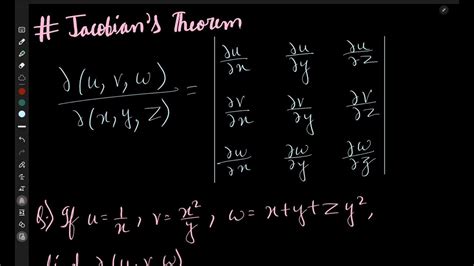 # Jacobian's Theorem
∂(u, v, w) / ∂(x, y, z) = | ∂u/∂x ∂u/∂y ∂u/∂z |
| ∂v/∂x ∂v/∂y ∂v/∂z |
| ∂w/∂x ∂w/∂y ∂w/∂z |
Q:) If u = 1/x, v = x²/y, w = x+y+zy²,
find ∂(u, v, w)